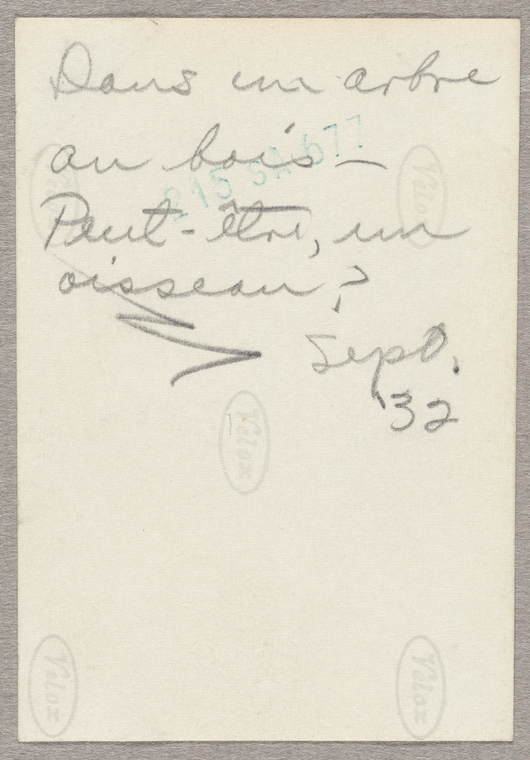 Dans un arbre
au bois —
Paut-être, un
oisseau?
Sept.
'32
215 SA 677
Velox
Velox
Velox
Velox
Velox